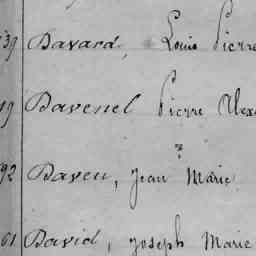 39 Davard, Louis Pierre
19 Davenel Pierre Alex
92 Daveu, Jean Marie
61 David, Joseph Marie